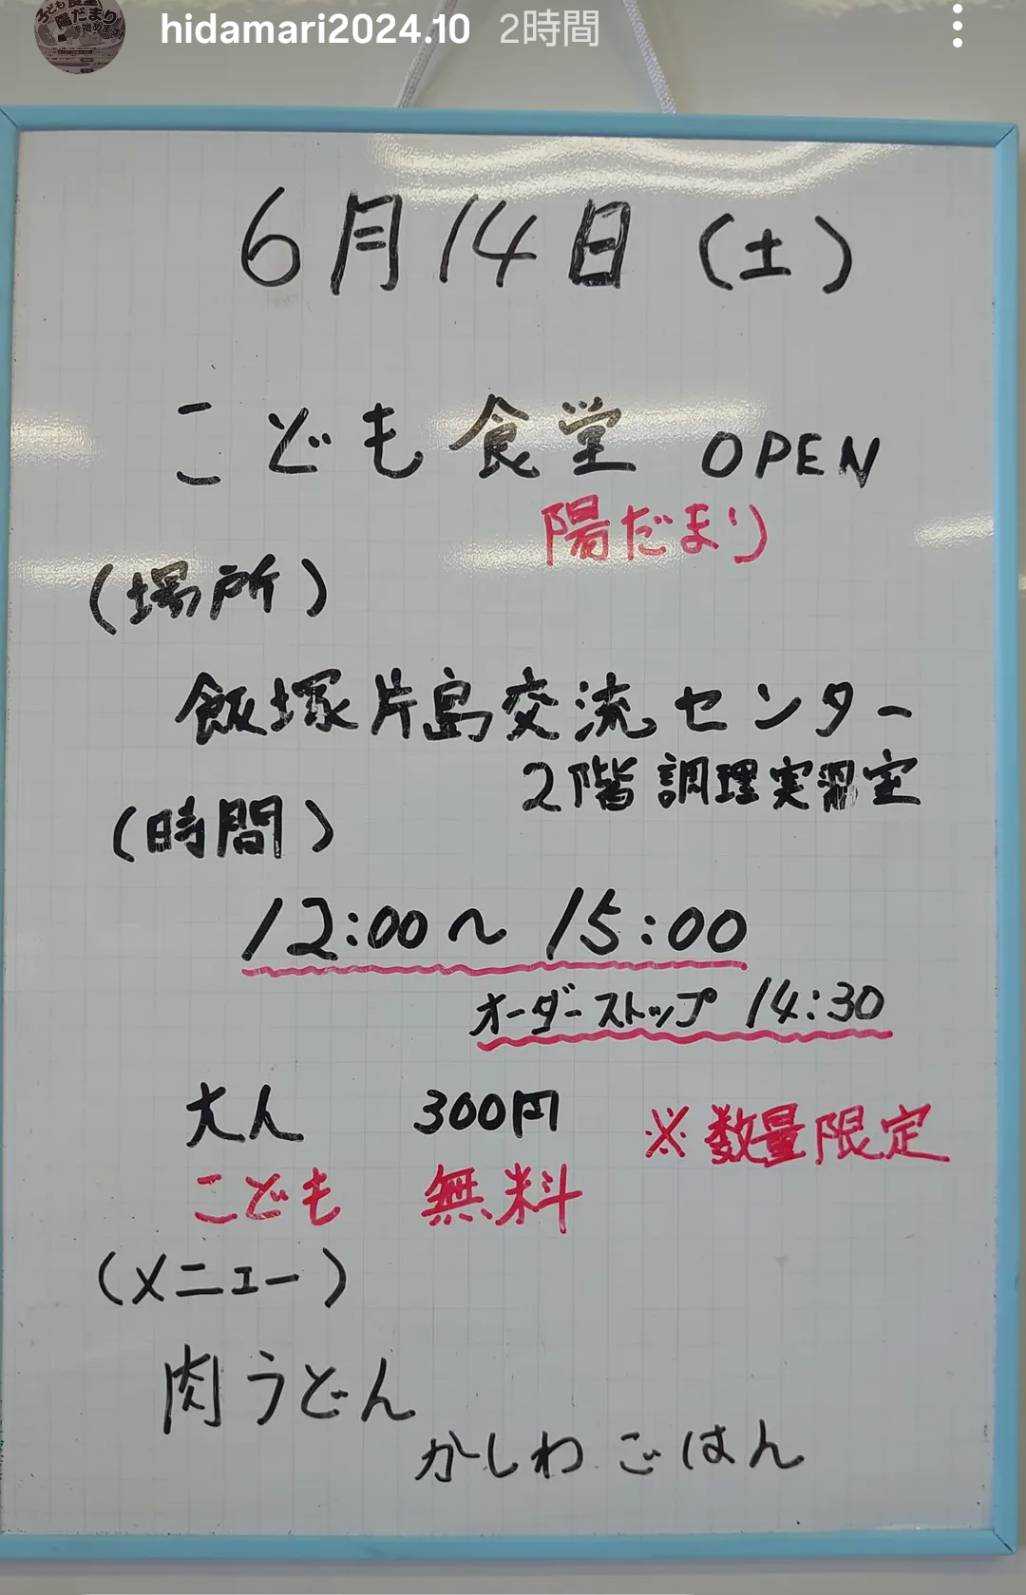 hidamari2024.10 2時間
6月14日(土)
こども食堂 OPEN
陽だまり
(場所)
飯塚片島交流センター
2階調理実習室
(時間)
12:00～15:00
オーダーストップ 14:30
大人 300円
※数量限定
こども 無料
(メニュー)
肉うどん
かしわごはん